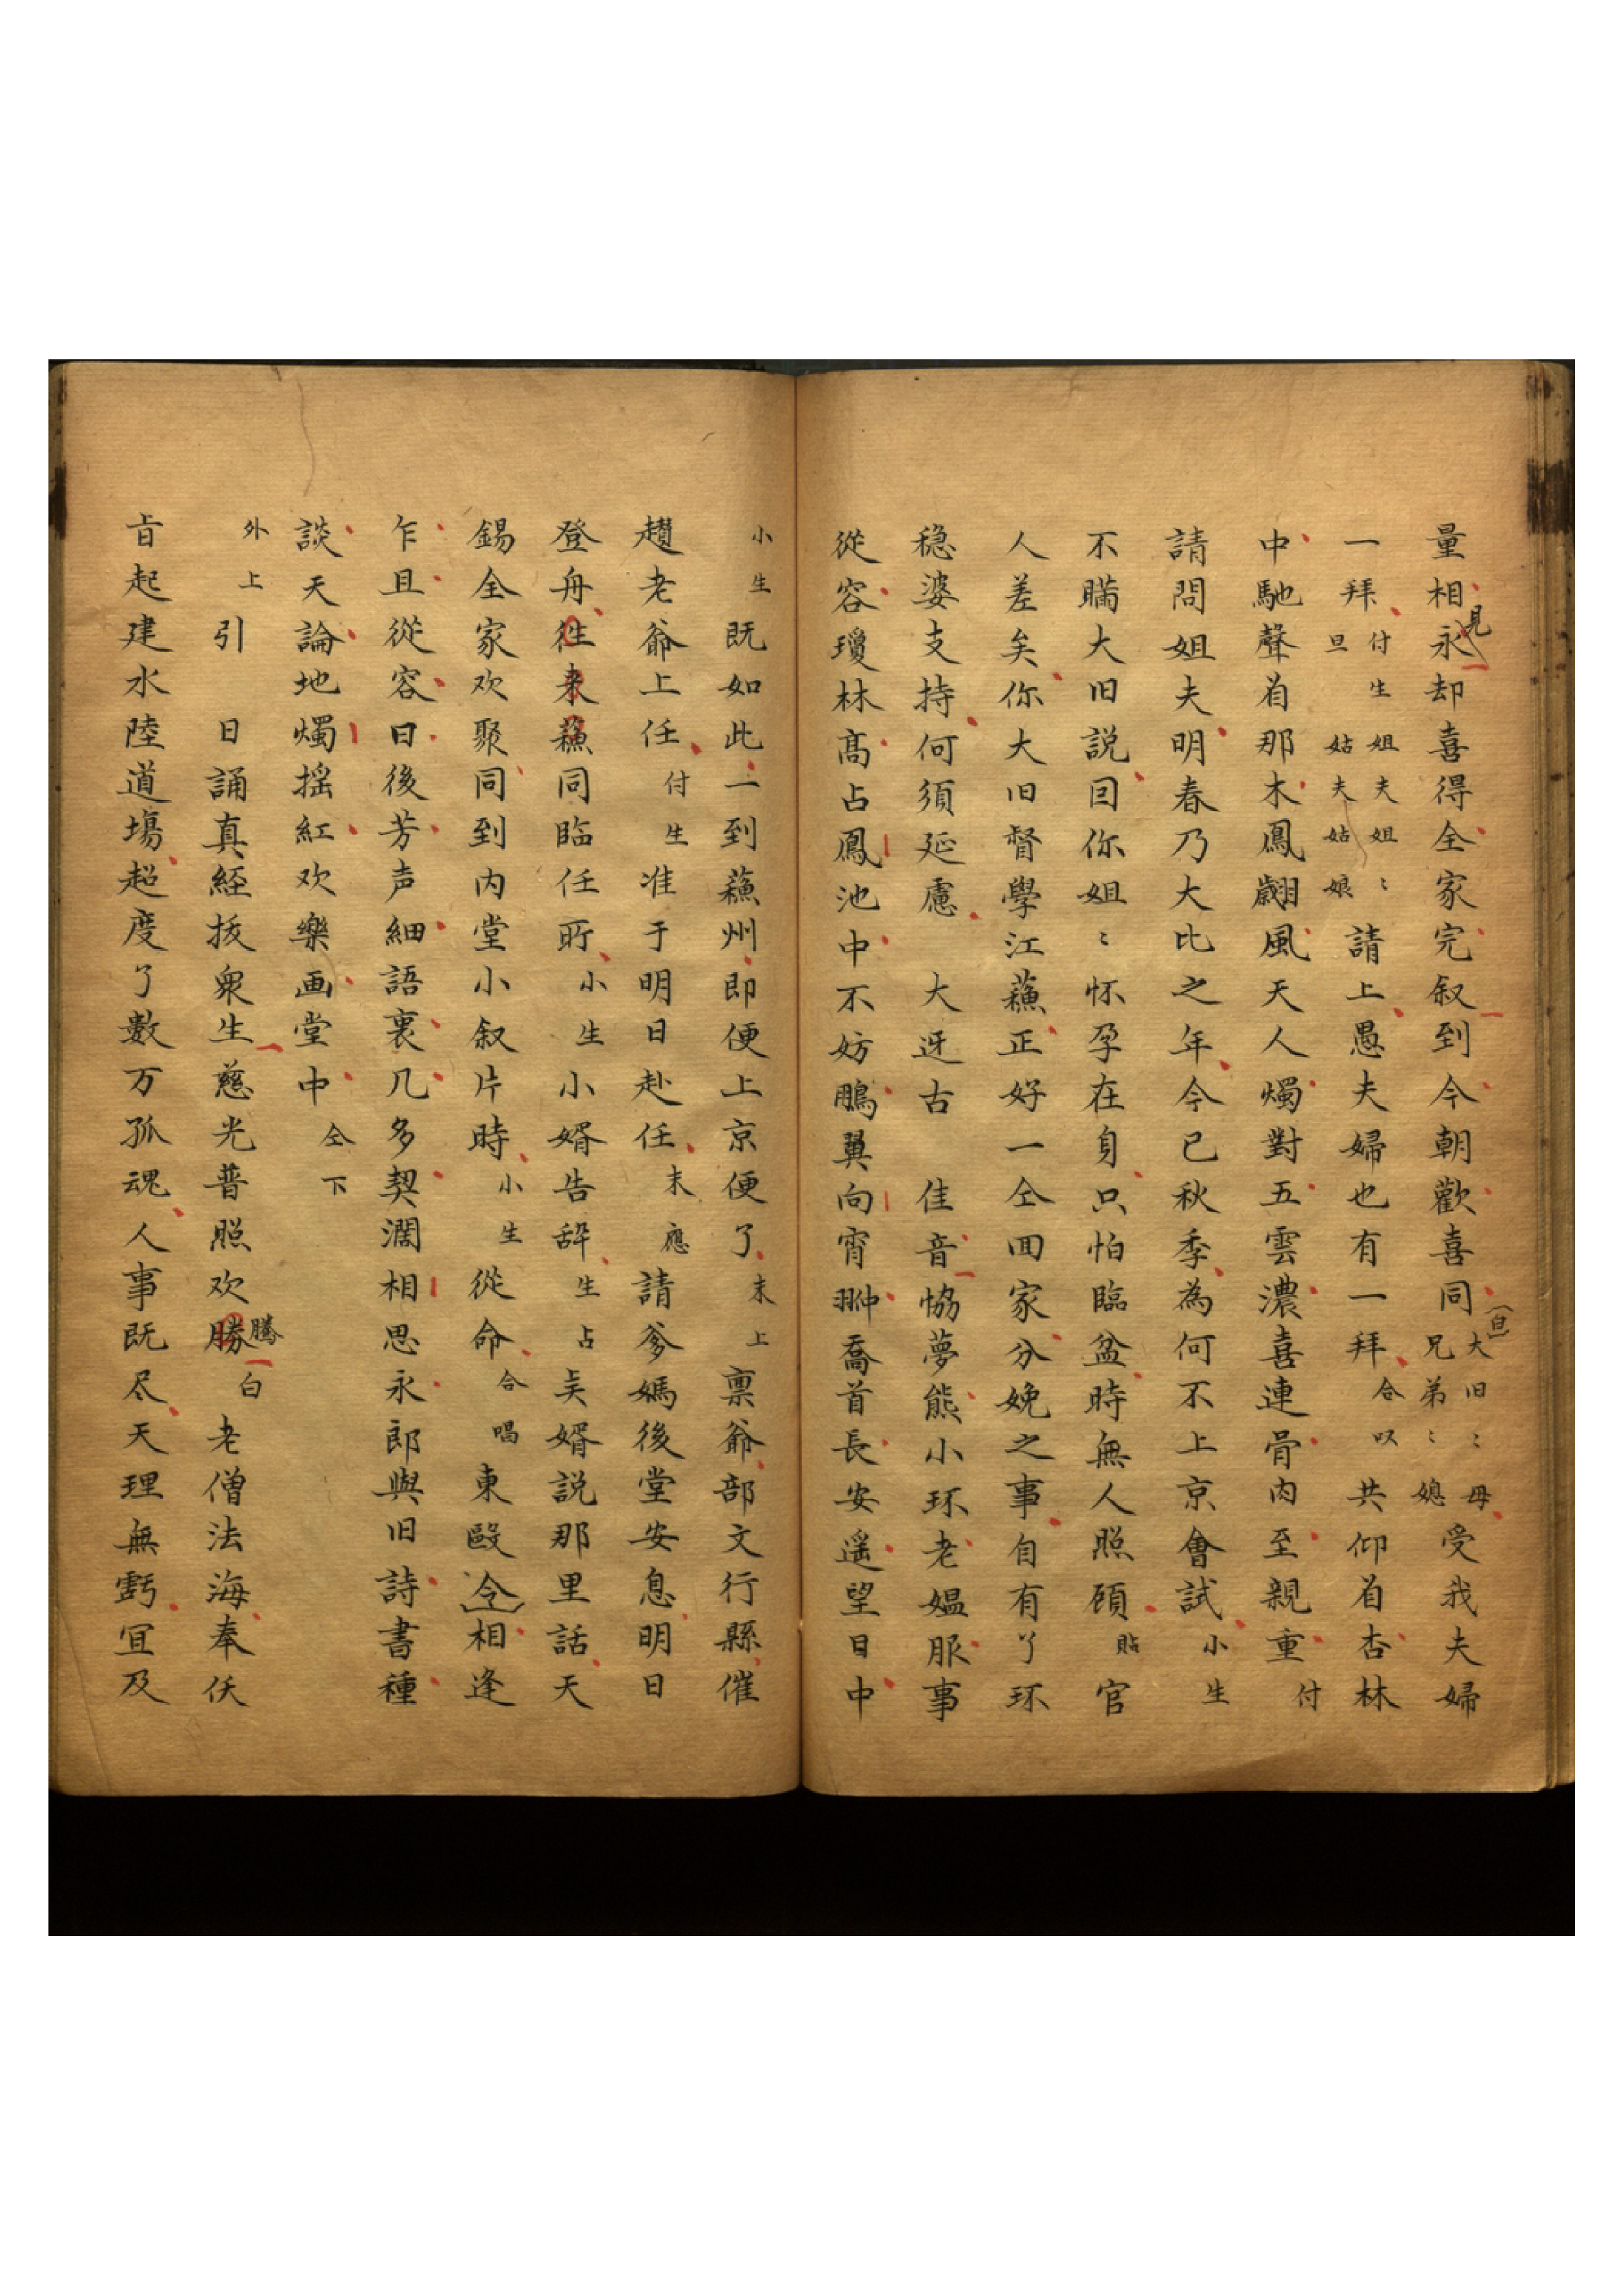 量相見永却喜得全家完叙到今朝歡喜同(白)大旧〻母兄弟〻媳受我夫婦
一拜付生旦姐夫姐〻姑夫姑娘請上愚夫婦也有一拜合叹共仰首杏林
中馳聲首那木鳳翽風天人燭對五雲濃喜連骨肉至親重付
請問姐夫明春乃大比之年今已秋季為何不上京會試小生
不瞞大旧説囙你姐〻怀孕在身只怕臨盆時無人照顧貼官
人差矣你大旧督學江蘓正好一仝囬家分娩之事自有丫环
穏婆支持何須延慮大迓古佳音恊夢熊小环老媪服事
從容瓊林髙占鳳池中不妨鵬翼向霄翀喬首長安遥望日中
小生既如此一到蘓州即便上京便了末上禀爺部文行縣催
趲老爺上任付生准于明日赴任末應請爹媽後堂安息明日
登舟徃来蘓同臨任所小生小婿告辤生占矣婿説那里話天
錫全家欢聚同到内堂小叙片時小生從命合唱東毆令相逢
乍且從容日後芳声細語裏几多契濶相思永郎與旧詩書種
談天論地燭揺紅欢樂画堂中仝下
外上引日誦真経拔衆生慈光普照欢勝騰白老僧法海奉佅
㫖起建水陸道塲超度了數万孤魂人事既尽天理無虧冝及